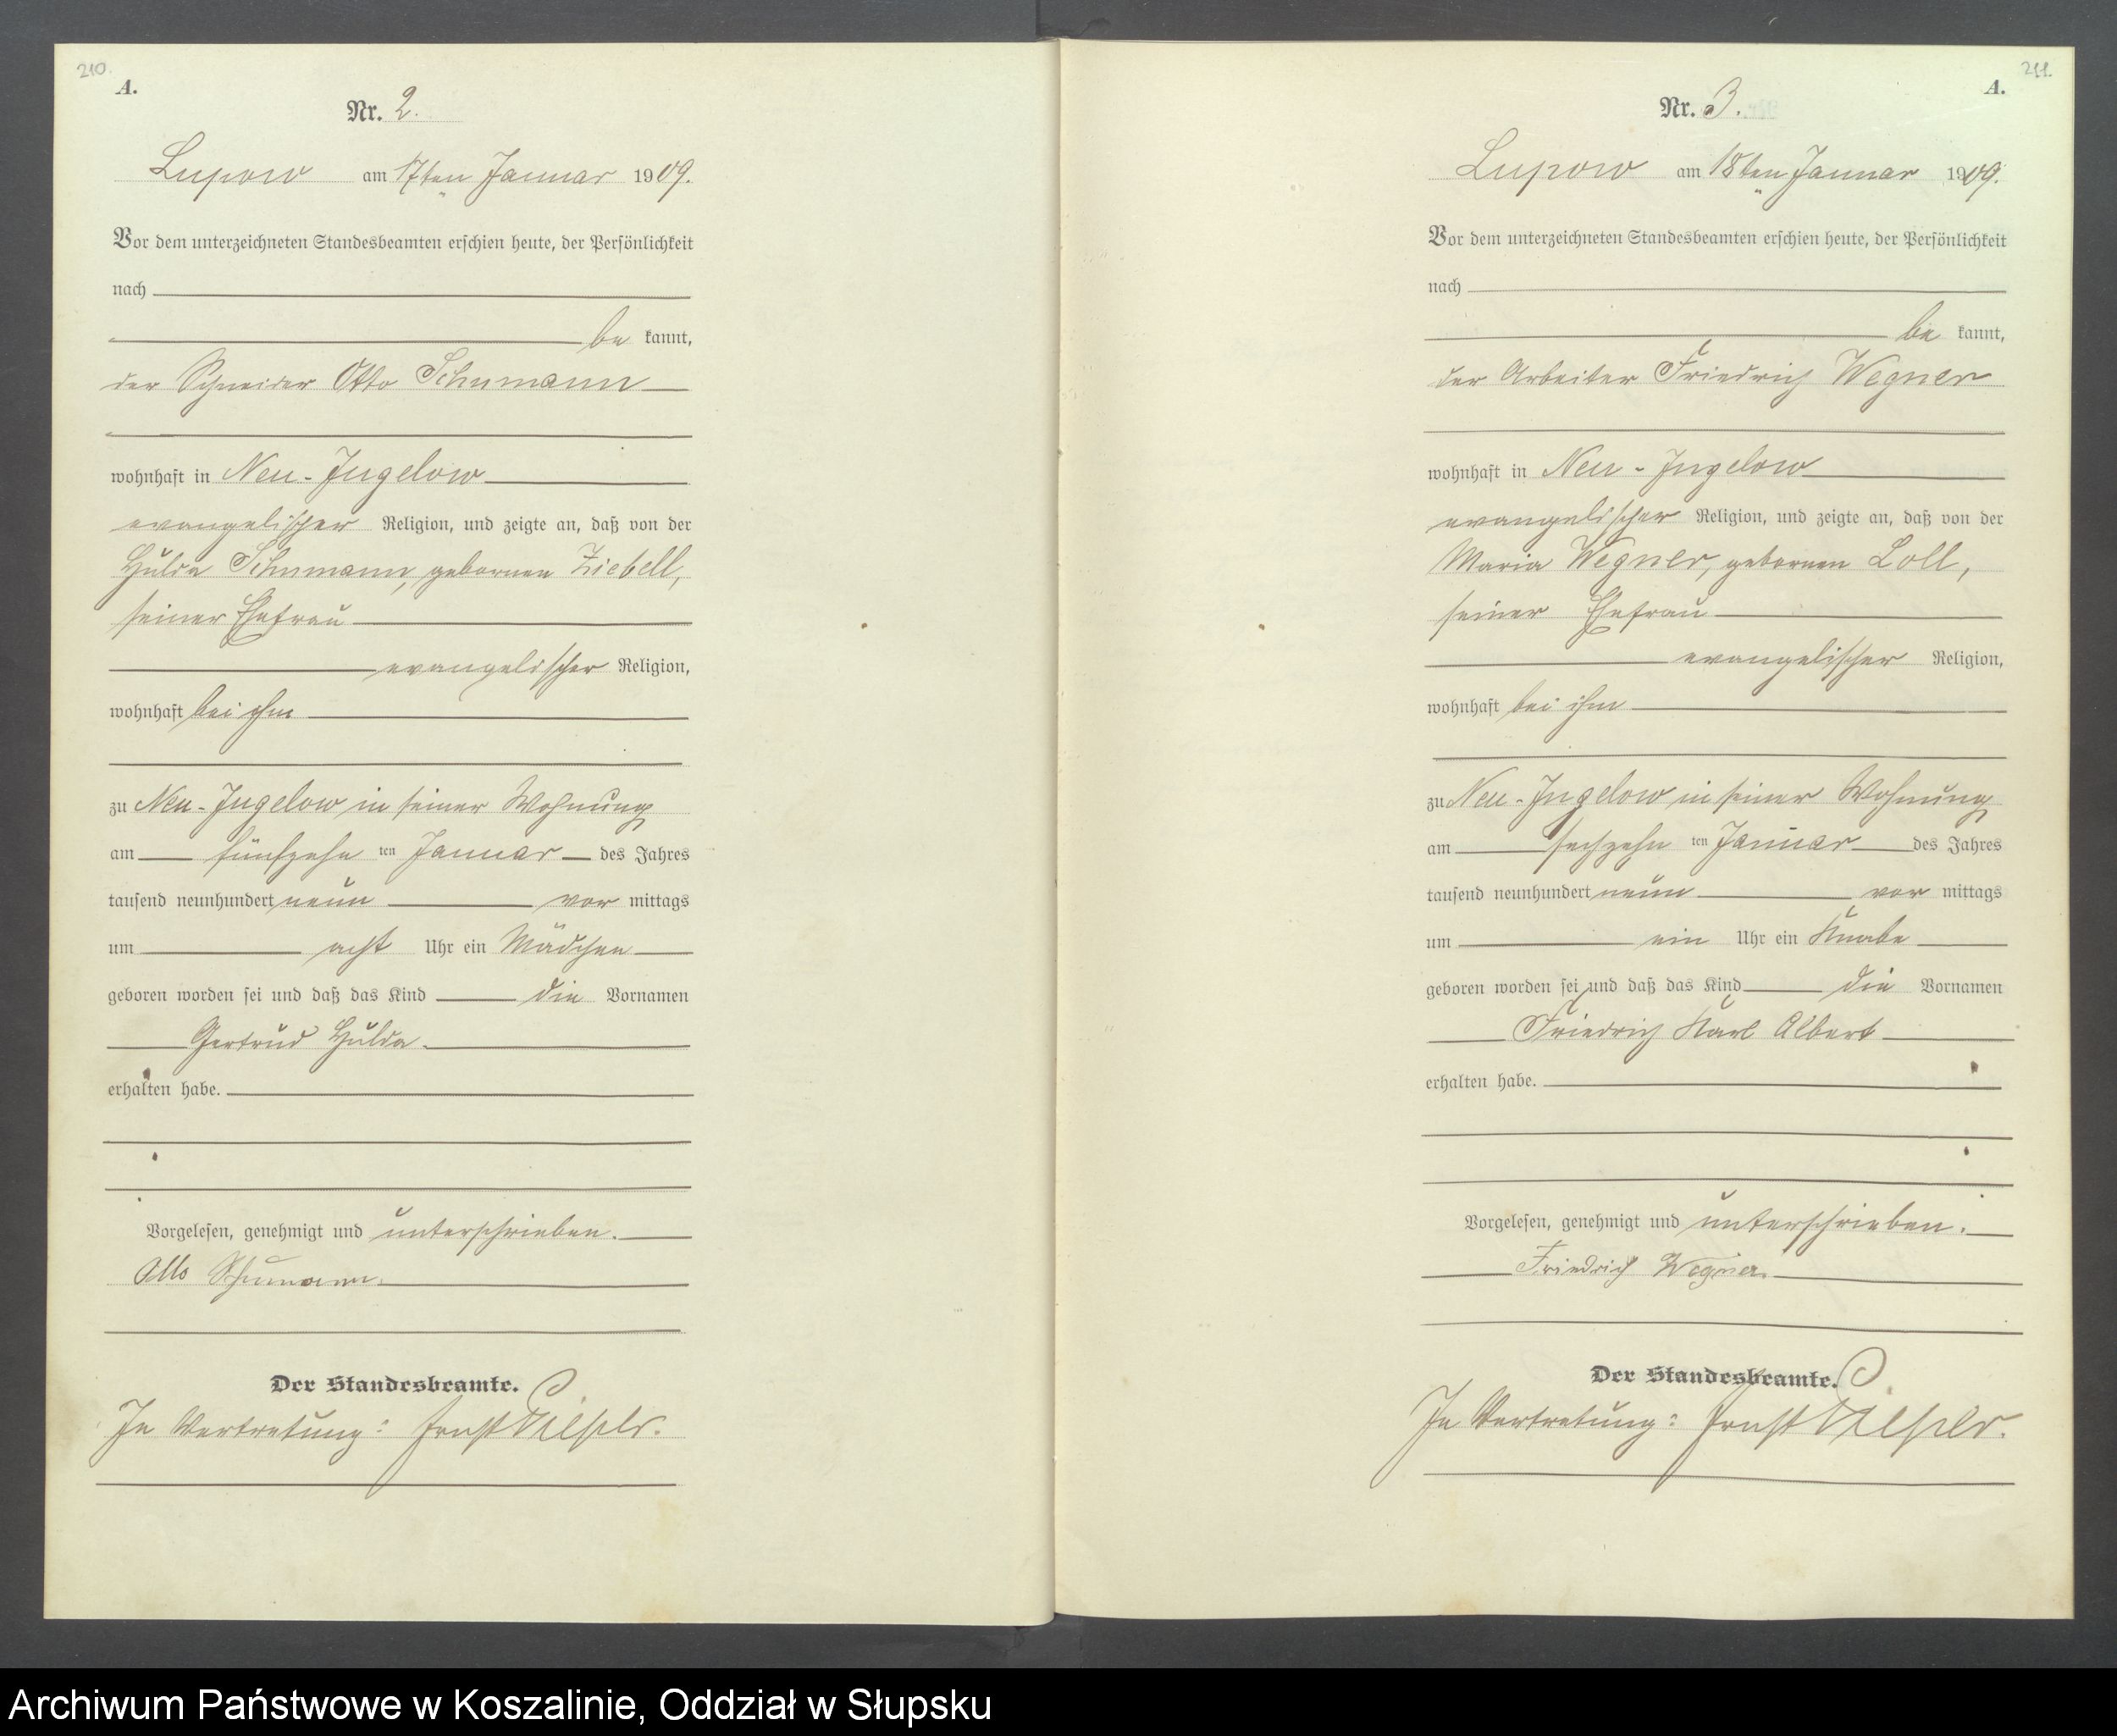 210.
A.
Nr. 2.
Lupow am 17ten Januar 1909.
Vor dem unterzeichneten Standesbeamten erschien heute, der Persönlichkeit
nach
be kannt,
der Schneider Otto Schumann
wohnhaft in Neu-Jugelow
evangelischer Religion, und zeigte an, daß von der
Hulda Schumann, gebornen Ziebell,
seiner Ehefrau
evangelischer Religion,
wohnhaft bei ihm
zu Neu-Jugelow in seiner Wohnung
am fünfzehn ten Januar des Jahres
tausend neunhundert neun vor mittags
um acht Uhr ein Mädchen
geboren worden sei und daß das Kind die Vornamen
Gertrud Hulda
erhalten habe.
Vorgelesen, genehmigt und unterschrieben.
Otto Schumann.
Der Standesbeamte.
In Vertretung: Ernst
211.
A.
Nr. 3.
Lupow am 18ten Januar 1909.
Vor dem unterzeichneten Standesbeamten erschien heute, der Persönlichkeit
nach
be kannt,
der Arbeiter Friedrich Wegner
wohnhaft in Neu-Jugelow
evangelischer Religion, und zeigte an, daß von der
Maria Wegner, gebornen Loll,
seiner Ehefrau
evangelischer Religion,
wohnhaft bei ihm
zu Neu-Jugelow in seiner Wohnung
am sechzehn ten Januar des Jahres
tausend neunhundert neun vor mittags
um ein Uhr ein Knabe
geboren worden sei und daß das Kind die Vornamen
Friedrich Karl Albert
erhalten habe.
Vorgelesen, genehmigt und unterschrieben.
Friedrich Wegner.
Der Standesbeamte.
In Vertretung: Ernst
Archiwum Państwowe w Koszalinie, Oddział w Słupsku